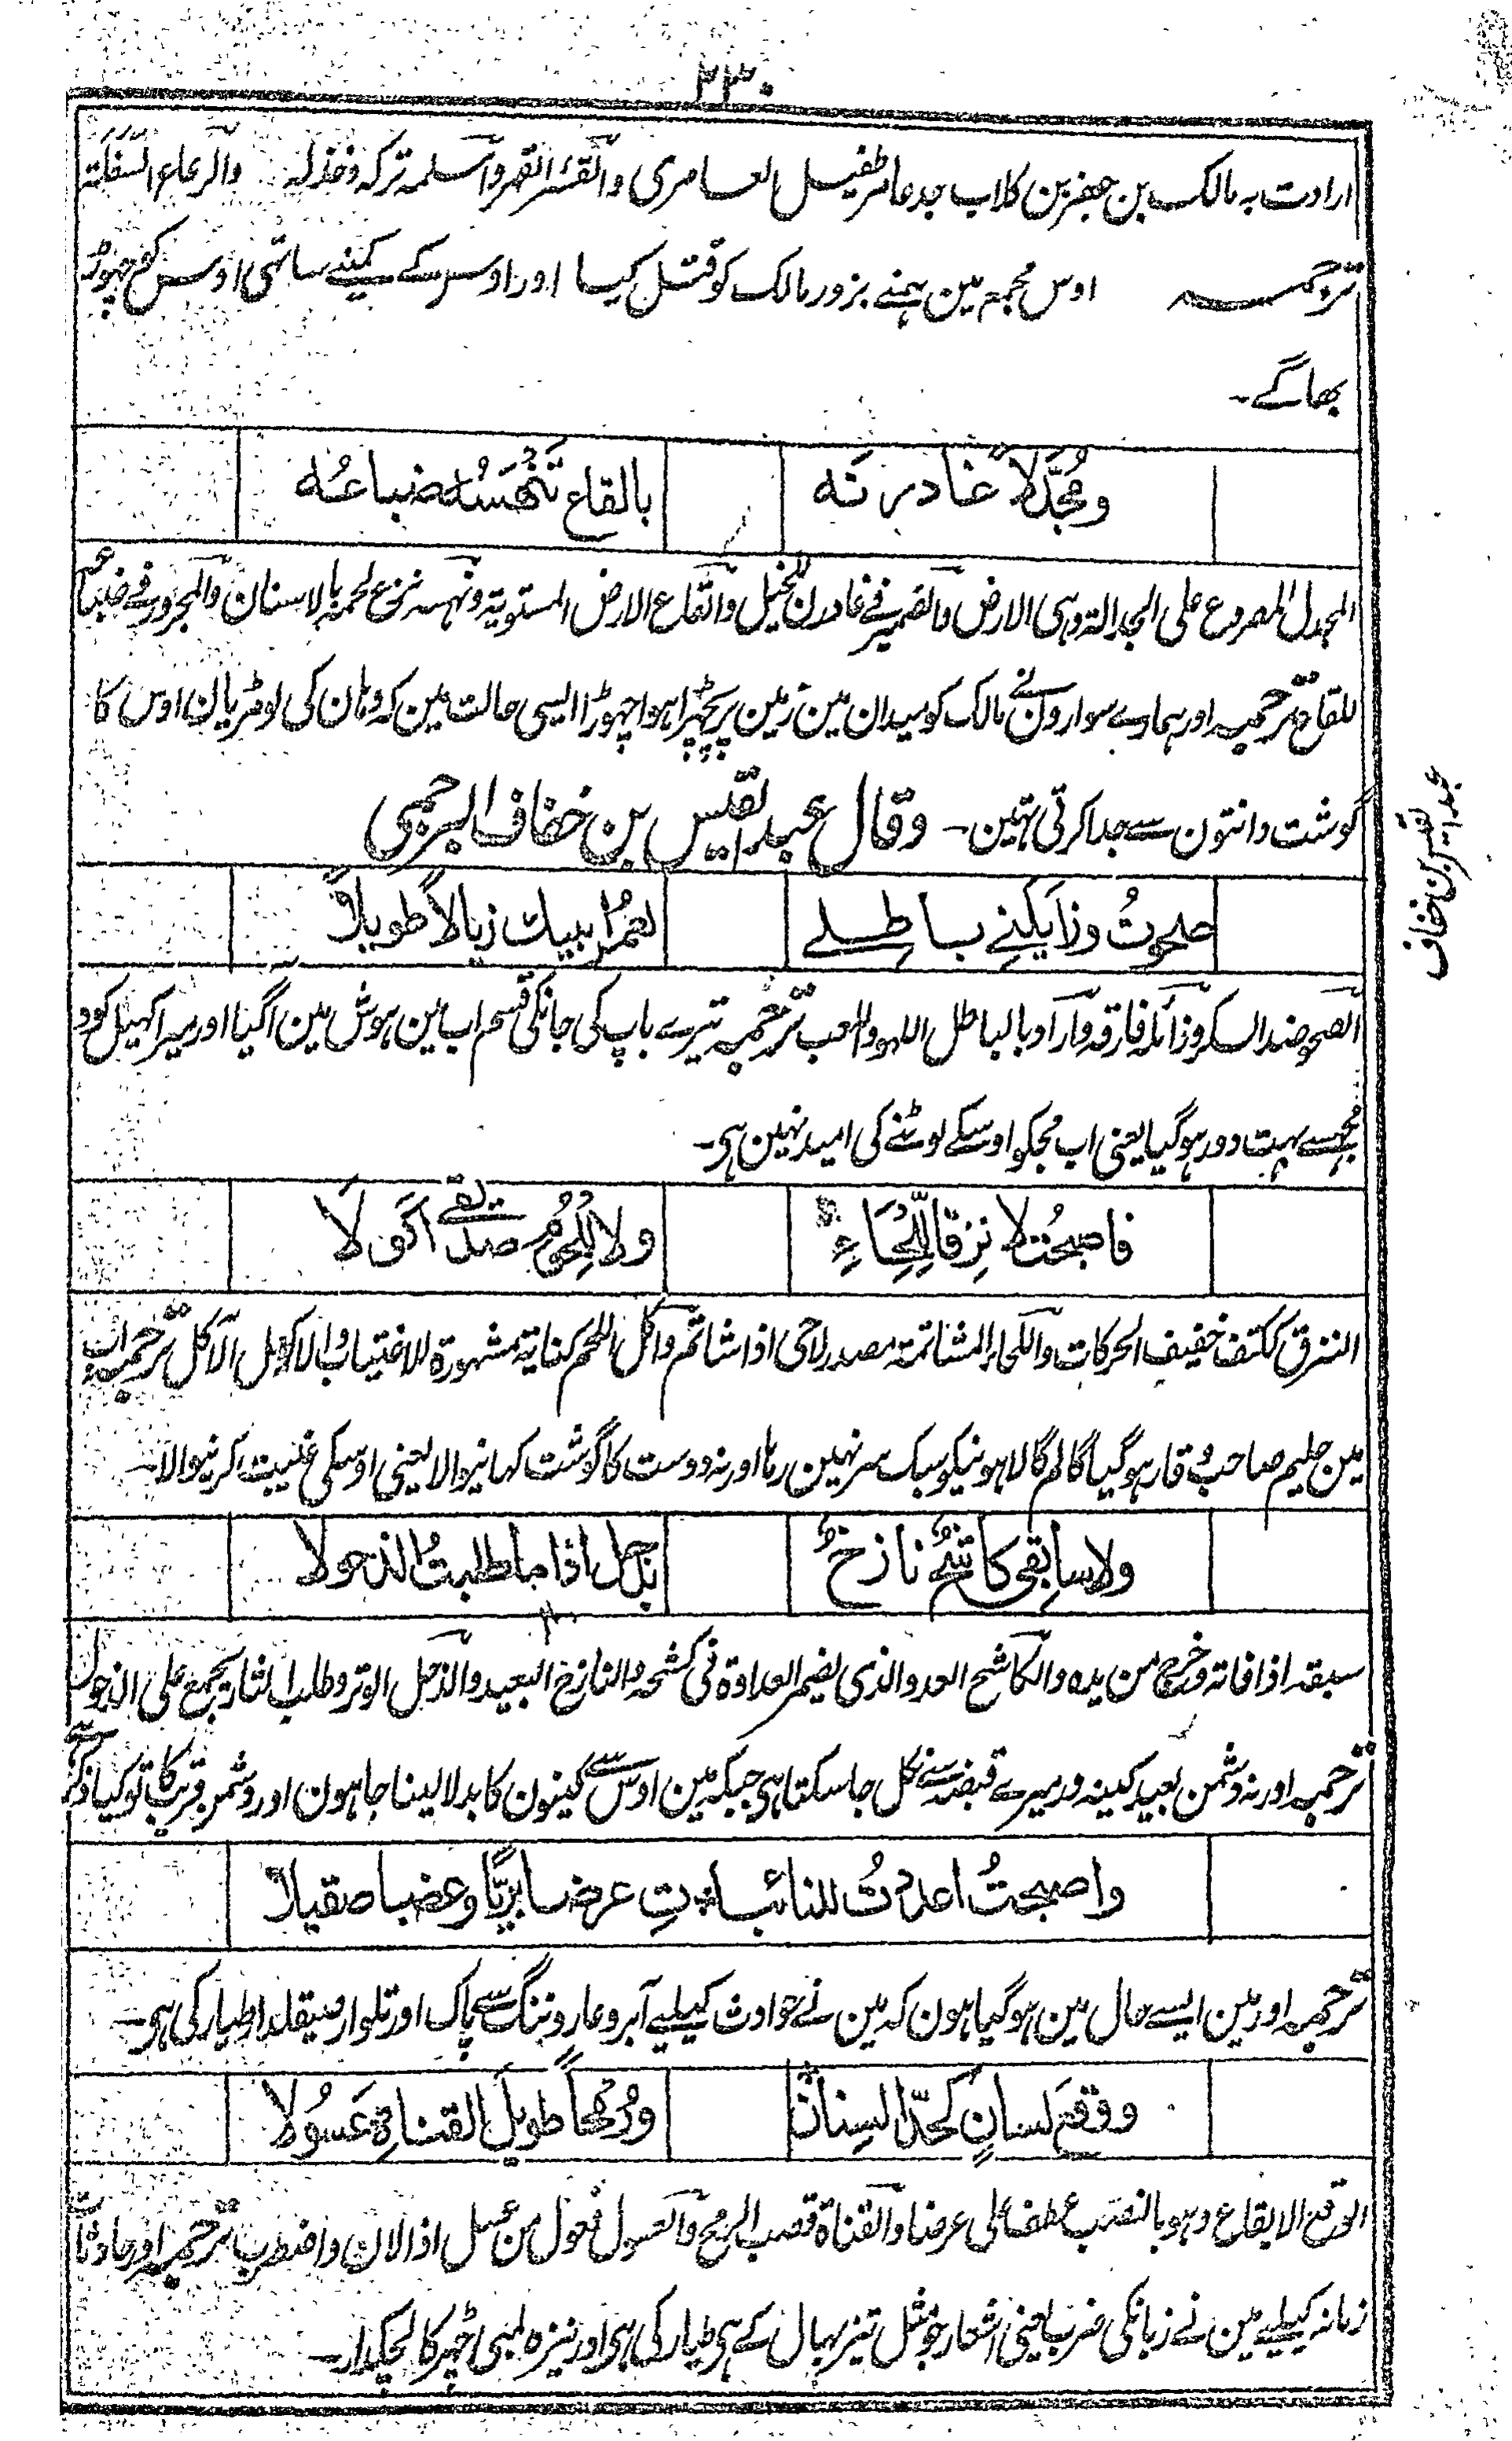 ۲۳۰
ارادت به مالک بن جعفر بن کلاب جد عامر طفیل العامری والقسر القهر واسلمه ترکه وخذله والرعاع السفلة
ترجمہ اوس مجمع مین ہمنے بزور مالک کو قتل کیا اور اوسکے کمینے ساتھی اوسکو چھوڑ
بھاگے۔
ومُجَدَّلًا غادرنَه بالقاع تَنْهَسُه ضباعُه
المجدل المصروع علی الجدالة وہی الارض والضمیر فے غادرن للخیل والقاع الارض المستویة ونہسہ نزع لحمہ بالاسنان والمجرور فے ضباعہ
للقاع ترجمہ اور ہمارے سوارونے مالک کو میدان مین زمین پر پچھڑا ہوا چھوڑا ایسی حالت مین کہ وہان کی لومڑیان اوس کا
گوشت دانتون سے جدا کرتی تہین۔ وقال عبد القیس بن خفاف البرجمی
عبد القیس بن خفاف
صحوتُ وزایَلَنِے باطلے لعَمرُ ابیك زیالًا طویلًا
الصحو ضد السکر وزائلہ فارقہ واراد بالباطل اللہو واللعب ترجمہ تیرے باپ کی جانکی قسم اب مین ہوش مین آگیا اور میرا کھیل کود
مجہسے بہت دور ہو گیا یعنی اب مجکو اوسکے لوٹنے کی امید نہین ہی۔
فاصبحتُ لا نَزِقًا لِلِّحَاءِ ولا لِلُحُومِ صدیقے اکولا
النزق ککتف خفیف الحرکات واللحاء المشاتمة مصدر لاحی اذا شاتم واکل اللحم کنایة مشہورة للاغتیاب والاکول الآکل ترجمہ اب
مین حلیم صاحب وقار ہو گیا گالم گالا ہونیکو سبک سر نہین رہا اور نہ دوست کا گوشت کہانیوالا یعنی اوسکی غیبت کرنیوالا۔
ولا سابقی کاشحٌ نازحٌ بذحل اذا ما طلبتُ الذحولا
سبقہ اذا فاتہ وخرج من یدہ والکاشح العدو الذی یضمر العداوة فی کشحہ والنازح البعید والذحل الوتر وطلب الثار یجمع علی الذحول
ترجمہ اور نہ دشمن بعید کینہ ور میرے قبضہ سے نکل جا سکتا ہی جبکہ مین اوس سے کینون کا بدلا لینا چاہون اور دشمن قریب کا تو کیا ذکر ہے
واصبحتُ اعددتُ للنائبا؞تِ عرضا بریًّا وعضبا صقیلا
ترجمہ اور مین ایسے حال مین ہو گیا ہون کہ مین نے حوادث کیلیے آبرو عار و ننگ سے پاک اور تلوار صیقلدار طیار کی ہی۔
ووقعَ لسانٍ کحدِّ السِنانِ ورُمْحًا طویلَ القناةِ عَسُولا
الوقع الایقاع وہو بالنصب عطف علی عرضا والقناة قصب الرمح والعسول فعول من عسل اذا لان واضطرب ترجمہ اور حادثات
زمانہ کیلیے مین نے زبانکی ضرب یعنی اشعار جو مثل تیز بھال کے ہی طیار کی ہی اور نیزہ لمبی چھڑ کا لچکدار۔